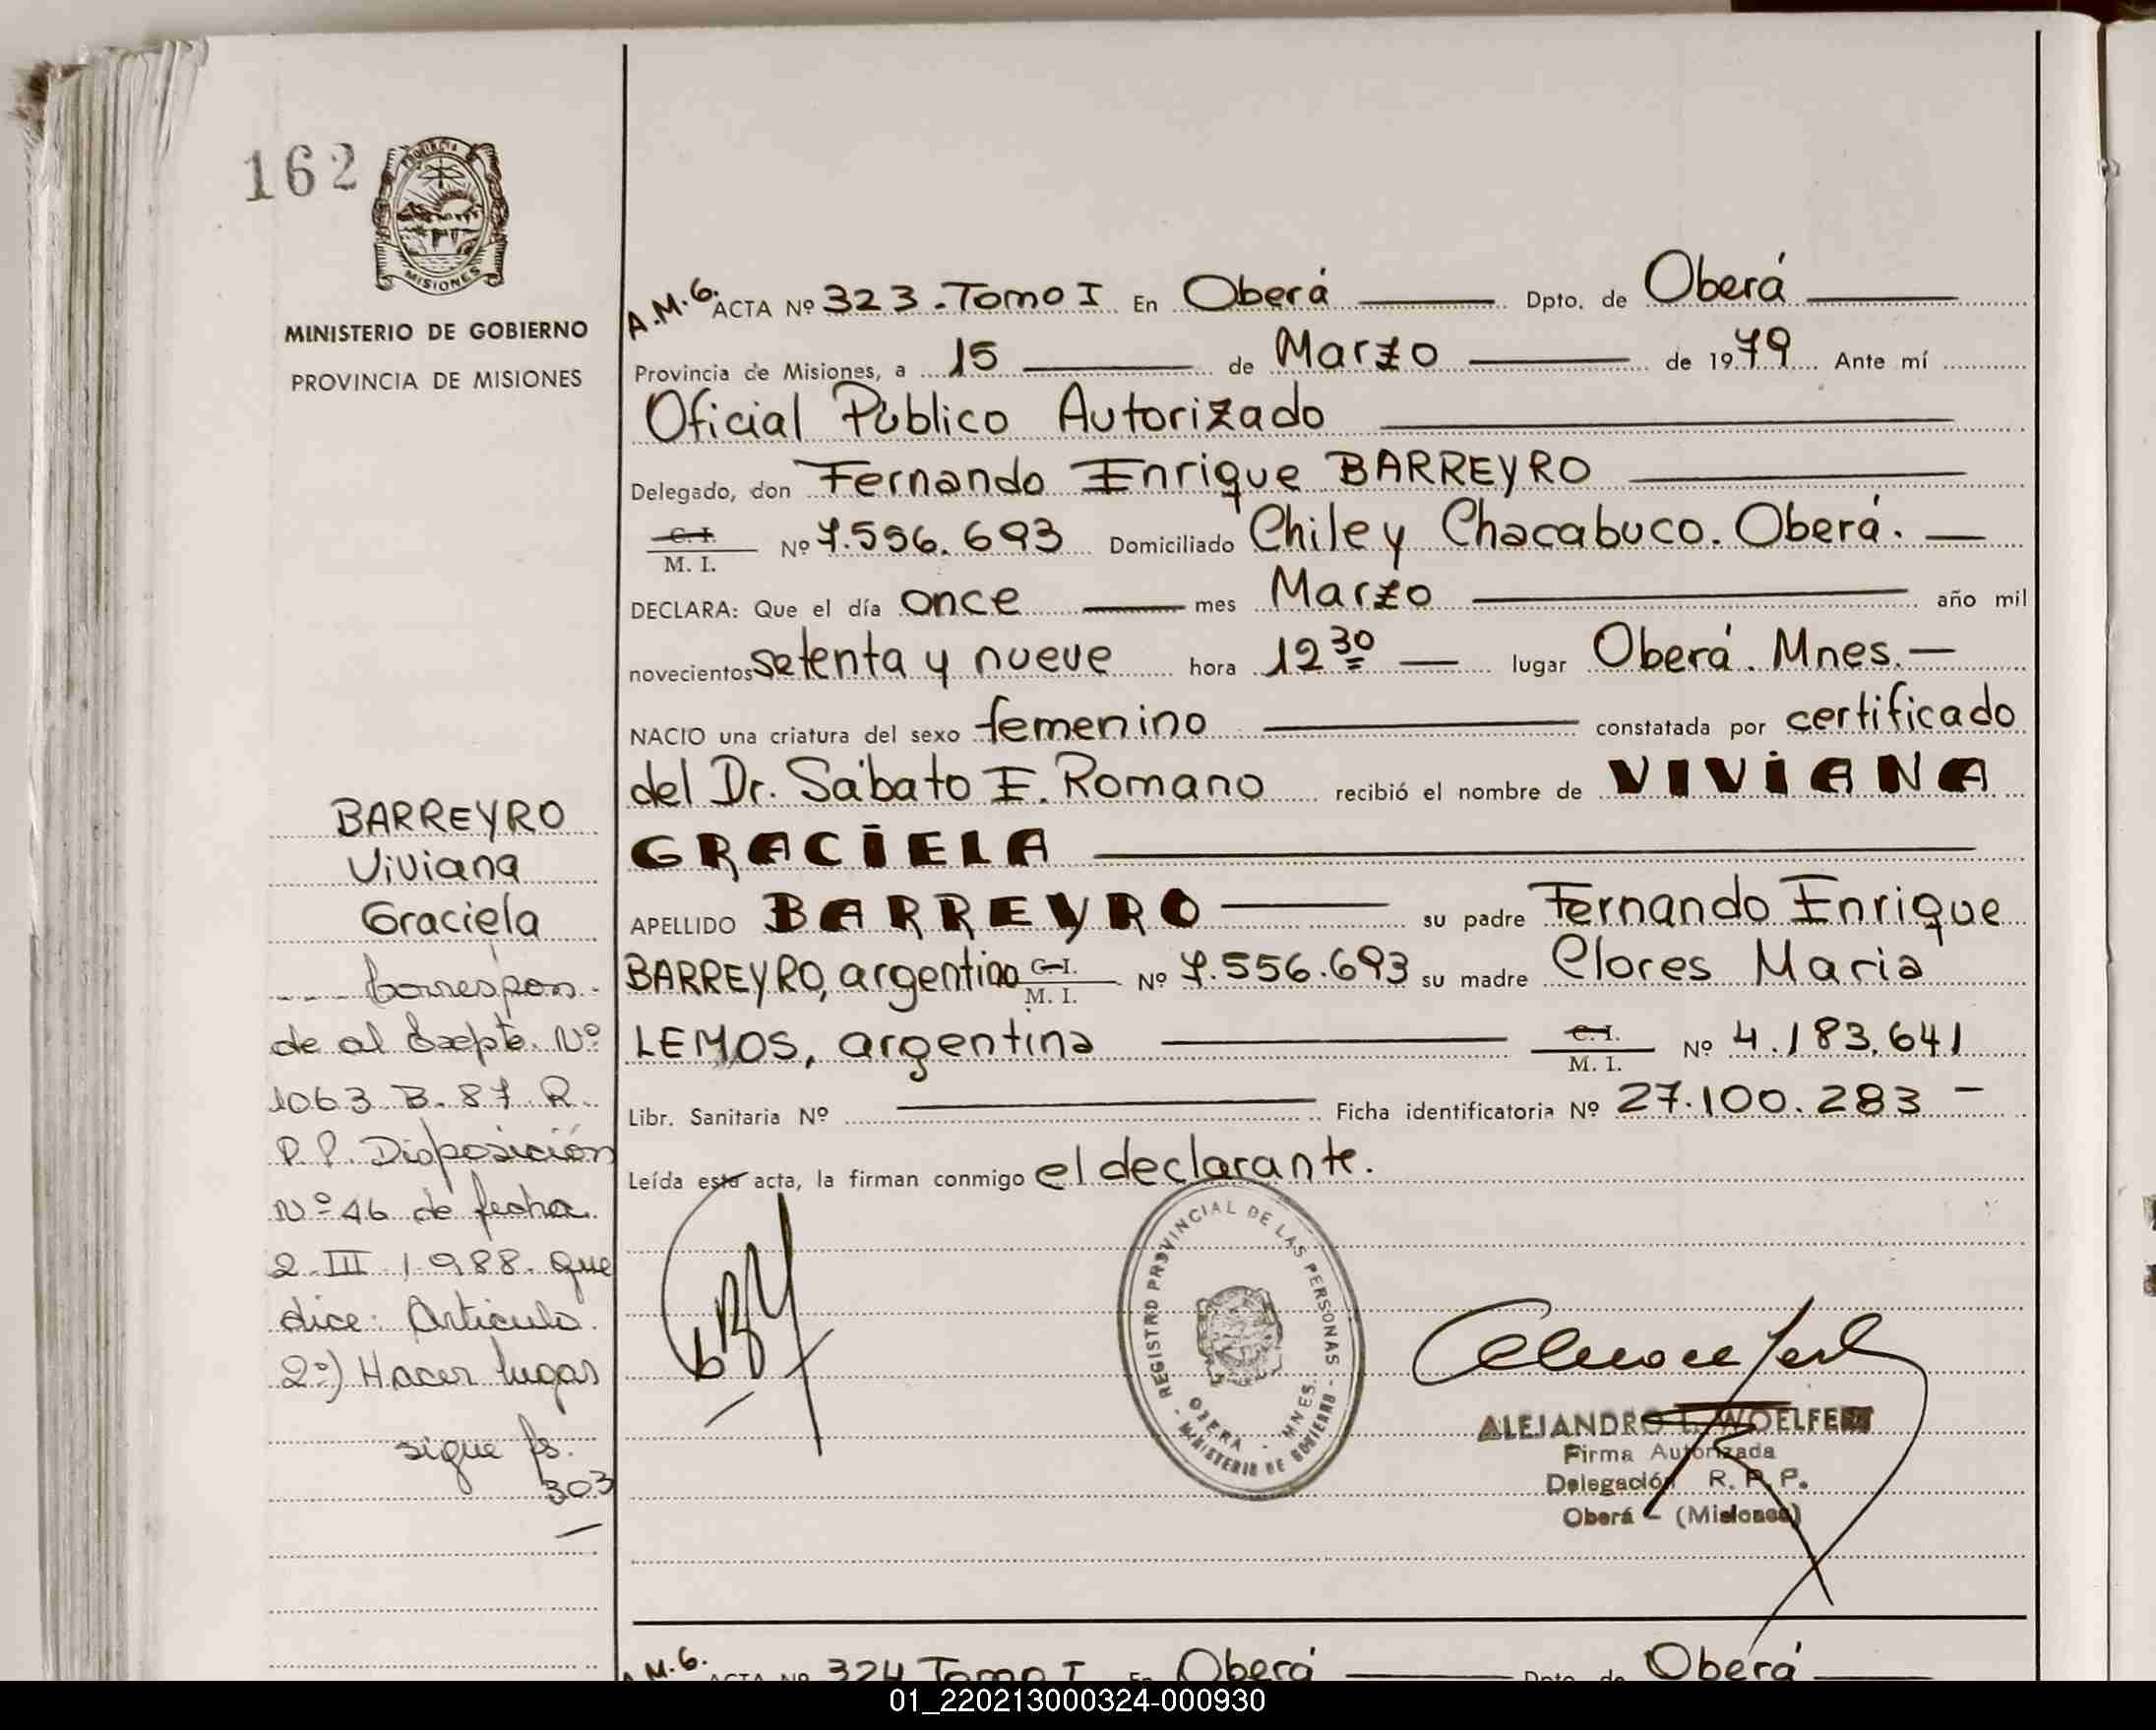 162
PROVINCIA
MISIONES
MINISTERIO DE GOBIERNO
PROVINCIA DE MISIONES
A.M.G. ACTA Nº 323.-Tomo I En Oberá Dpto. de Oberá
Provincia de Misiones, a 15 de Marzo de 1979 Ante mí
Oficial Público Autorizado
Delegado, don Fernando Enrique BARREYRO
C. I.
M. I. Nº 7.556.693 Domiciliado Chile y Chacabuco. Oberá.
DECLARA: Que el día once mes Marzo año mil
novecientos setenta y nueve hora 12 30 lugar Oberá. Mnes.
NACIO una criatura del sexo femenino constatada por certificado
del Dr. Sábato E. Romano recibió el nombre de VIVIANA
GRACIELA
APELLIDO BARREYRO su padre Fernando Enrique
BARREYRO, argentino C. I. M. I. Nº 7.556.693 su madre Clores Maria
LEMOS, argentina C. I. M. I. Nº 4.183.641
Libr. Sanitaria Nº Ficha identificatoria Nº 27.100.283
Leída esta acta, la firman conmigo el declarante.
BARREYRO
Viviana
Graciela
Correspon-
de al Expte. Nº
1063 B. 87 R.
P.P. Disposición
Nº 46 de fecha
2.III.1988. que
dice: Articulo
2º) Hacer lugar
sigue fs.
303
REGISTRO PROVINCIAL DE LAS PERSONAS - MINISTERIO DE GOBIERNO -
OBERA - MNES.
ALEJANDRO L. WOELFERT
Firma Autorizada
Delegación R. P. P.
Oberá - (Misiones)
A.M.G. ACTA Nº 324 Tomo I En Oberá Dpto. de Oberá
01_220213000324-000930